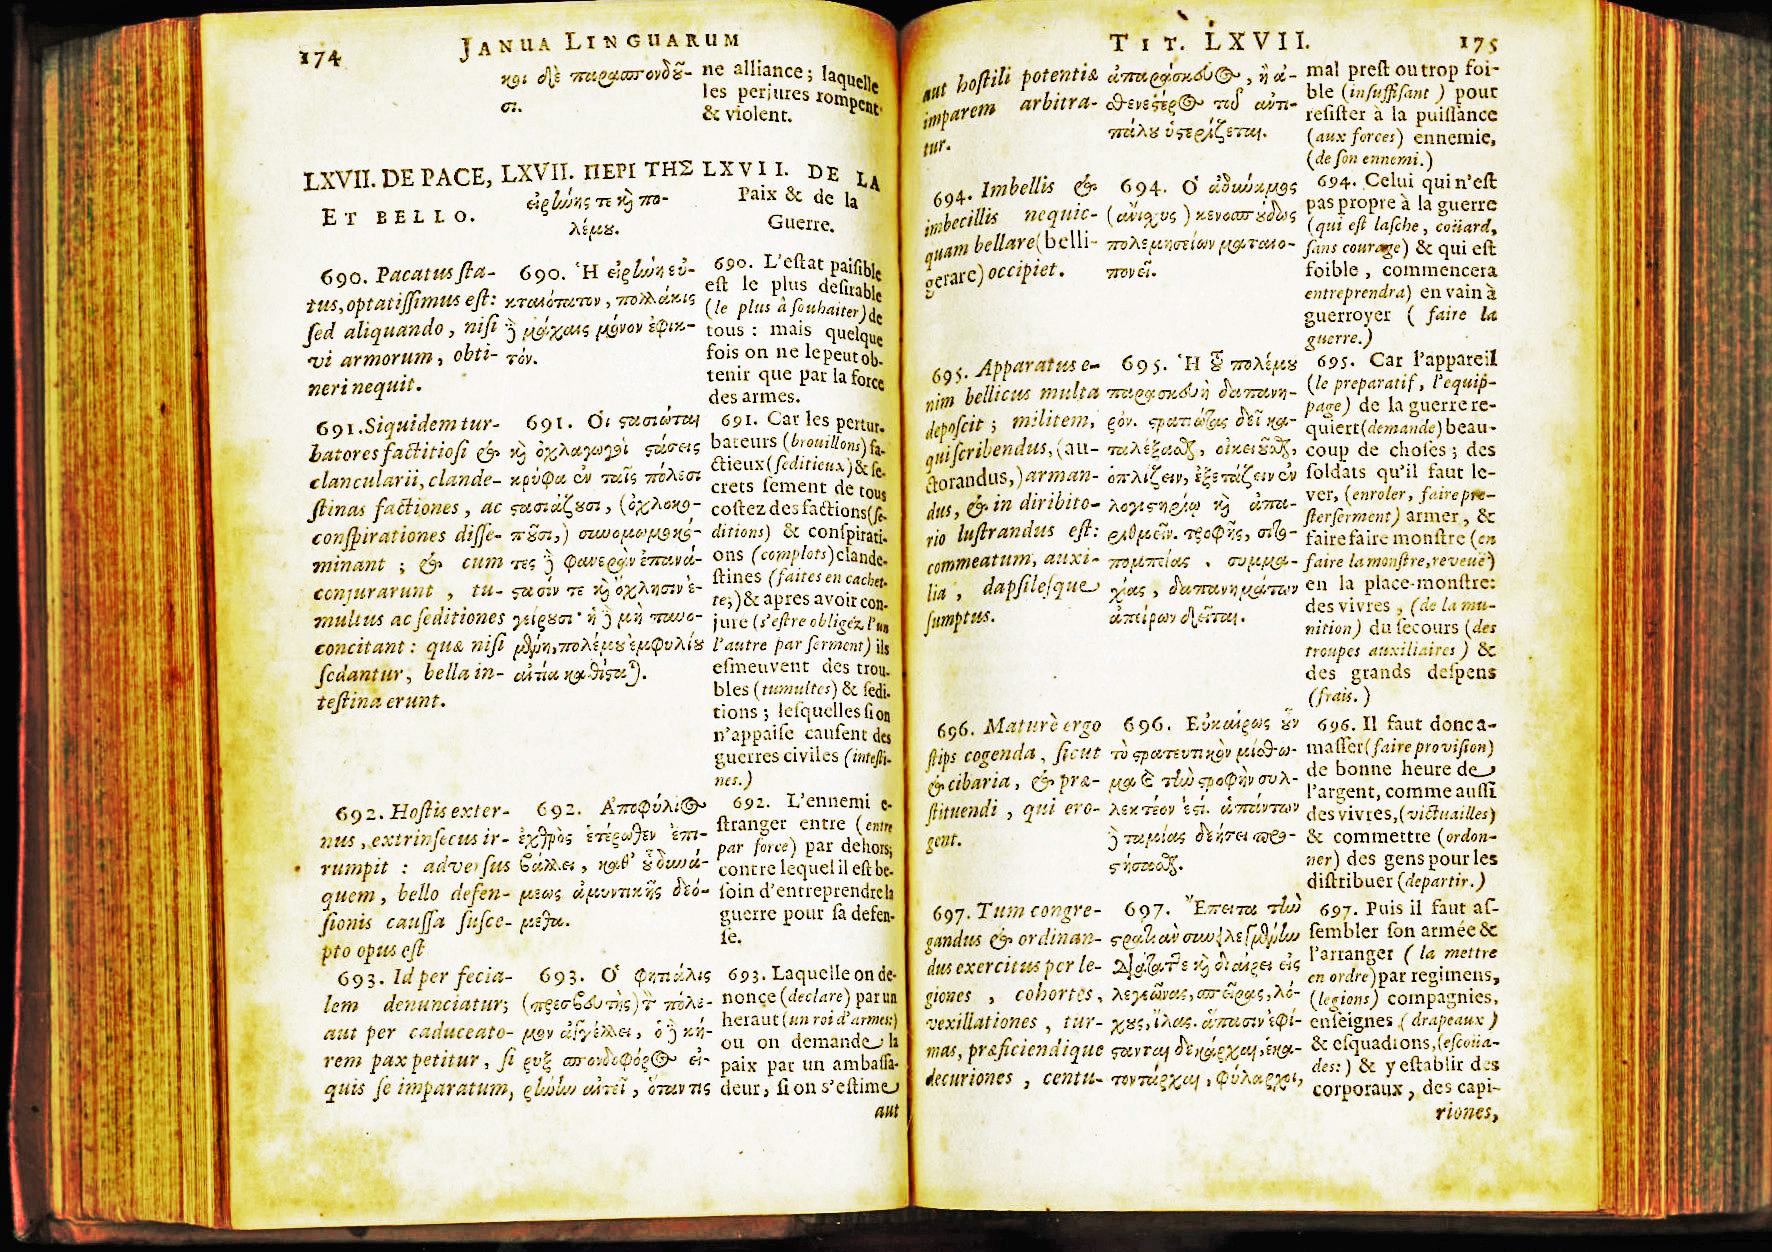 174
JANUA LINGUARUM
καὶ
σι.
ne alliance; laquelle
les perjures rompent
& violent.
LXVII. DE PACE,
ET BELLO.
LXVII. ΠΕΡΙ ΤΗΣ
εἰρήνης τε καὶ πο-
λέμου.
LXVII. DE LA
Paix & de la
Guerre.
690. Pacatus sta-
tus, optatissimus est:
sed aliquando, nisi
vi armorum, obti-
neri nequit.
690. Ἡ εἰρήνη εὐ-
κταιότατον, πολλάκις
μάχαις μόνον ἐφικ-
τόν.
690. L'estat paisible
est le plus desirable
(le plus à souhaiter) de
tous : mais quelque
fois on ne le peut ob-
tenir que par la force
des armes.
691. Siquidem tur-
batores factitiosi &
clancularii, clande-
stinas factiones, ac
conspirationes disse-
minant ; & cum
conjurarunt, tu-
multus ac seditiones
concitant : quæ nisi
sedantur, bella in-
testina erunt.
691. Οἱ στασιῶται
καὶ ὀχλαγωγοὶ στάσεις
κρύφα ἐν ταῖς πόλεσι
στασιάζουσι, (ὀχλοκο-
ποῦσι,)
στασίν τε καὶ ὄχλησιν ἐ-
γείρουσι·
πολέμου ἐμφυλίου
αἰτία
691. Car les pertur-
bateurs (brouillons) fa-
ctieux (seditieux) & se-
crets sement de tous
costez des factions (se-
ditions) & conspirati-
ons (complots) clande-
stines (faites en cachet-
te;) & apres avoir con-
juré (s'estre obligéz l'un
l'autre par serment) ils
esmeuvent des trou-
bles (tumultes) & sedi-
tions ; lesquelles si on
n'appaise causent des
guerres civiles (intesti-
nes.)
692. Hostis exter-
nus, extrinsecus ir-
rumpit : adversus
quem, bello defen-
sionis caussa susce-
pto opus est
692. Ἀποφύλιος
ἐχθρὸς ἑτέρωθεν ἐπι-
βάλλει, καθ' οὗ δυνά-
μεως ἀμυντικῆς δεό-
μεθα.
692. L'ennemi e-
stranger entre (entre
par force) par dehors;
contre lequel il est be-
soin d'entreprendre la
guerre pour sa defen-
se.
693. Id per fecia-
lem denunciatur;
aut per caduceato-
rem pax petitur, si
quis se imparatum,
693. Ὁ φητιάλις
(πρεσβευτὴς) πόλε-
μον ἀγγέλλει, ὁ κή-
ρυξ σπονδοφόρος εἰ-
ρήνην αἰτεῖ, ὅταν τις
693. Laquelle on de-
nonçe (declare) par un
heraut (un roi d'armes:)
ou on demande la
paix par un ambassa-
deur, si on s'estime
aut
TIT. LXVII.
175
aut hostili potentiæ
imparem arbitra-
tur.
ἀπαράσκευος, ἢ ἀ-
σθενέστερος τοῦ ἀντι-
πάλου ὑστερίζεται.
mal prest ou trop foi-
ble (insuffisant) pour
resister à la puissance
(aux forces) ennemie,
(de son ennemi.)
694. Imbellis &
imbecillis nequic-
quam bellare (belli-
gerare) occipiet.
694. Ὁ ἀδύναμος
(ἄνισχυς) κενοσπούδως
πολεμησείων ματαιο-
πονεῖ.
694. Celui qui n'est
pas propre à la guerre
(qui est lasche, coüard,
sans courage) & qui est
foible, commencera
entreprendra) en vain à
guerroyer (faire la
guerre.)
695. Apparatus e-
nim bellicus multa
deposcit ; militem,
qui scribendus, (au-
ctorandus,) arman-
dus, & in diribito-
rio lustrandus est:
commeatum, auxi-
lia, dapsilesque
sumptus.
695. Ἡ τοῦ πολέμου
παρασκευὴ δαπανη-
ρόν. στρατιώτας δεῖ κα-
ὁπλίζειν, ἐξετάζειν ἐν
λογιστηρίῳ καὶ ἀπα-
ριθμεῖν. τροφῆς, σιτο-
πομπίας, συμμα-
χίας, δαπανημάτων
ἀπείρων δεῖται.
695. Car l'appareil
(le preparatif, l'equip-
page) de la guerre re-
quiert (demande) beau-
coup de choses ; des
soldats qu'il faut le-
ver, (enroler, faire pre-
ster serment) armer, &
faire faire monstre (en
faire la monstre, reveuë)
en la place-monstre:
des vivres, (de la mu-
nition) du secours (des
troupes auxiliaires) &
des grands despens
(frais.)
696. Maturè ergo
stips cogenda, sicut
& cibaria, & præ-
stituendi, qui ero-
gent.
696. Εὐκαίρως οὖν
τὸ στρατευτικὸν μίσθω-
μα καὶ τὴν τροφὴν συλ-
λεκτέον ἐστί. ἁπάντων
ταμίας δεήσει προ-
στήσασθαι.
696. Il faut donc a-
masser (faire provision)
de bonne heure de
l'argent, comme aussi
des vivres, (victuailles)
& commettre (ordon-
ner) des gens pour les
distribuer (departir.)
697. Tum congre-
gandus & ordinan-
dus exercitus per le-
giones, cohortes,
vexillationes, tur-
mas, præficiendique
decuriones, centu-
697. Ἔπειτα τὴν
καὶ διαίρει εἰς
λεγεῶνας, σπείρας, λό-
χους, ἴλας. ἅπασιν ἐφί-
στανται δεκάρχαι, ἑκα-
τοντάρχαι, φύλαρχοι,
697. Puis il faut as-
sembler son armée &
l'arranger (la mettre
en ordre) par regimens,
(legions) compagnies,
enseignes (drapeaux)
& esquadrons, (escoüa-
des:) & y establir des
corporaux, des capi-
riones,